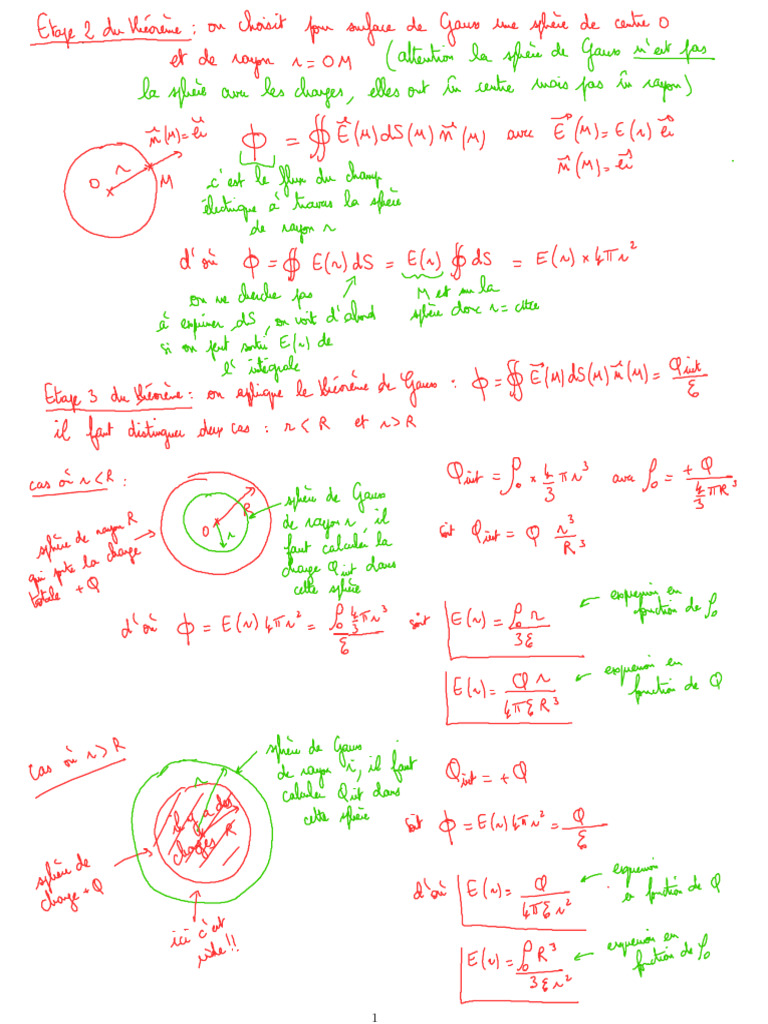 Etape 2 du théorème : on choisit pour surface de Gauss une sphère de centre O
et de rayon r = OM (attention la sphère de Gauss n'est pas
la sphère avec les charges, elles ont un centre mais pas un rayon)
n⃗(M) = e⃗r
O r M
ϕ = ∯ E⃗(M) dS(M) n⃗(M) avec E⃗(M) = E(r) e⃗r
n⃗(M) = e⃗r
c'est le flux du champ
électrique à travers la sphère
de rayon r
d'où ϕ = ∯ E(r) dS = E(r) ∯ dS = E(r) × 4πr²
on ne cherche pas
à exprimer dS, on voit d'abord
si on peut sortir E(r) de
l'intégrale
M est sur la
sphère donc r = cste
Etape 3 du théorème : on applique le théorème de Gauss : ϕ = ∯ E⃗(M) dS(M) n⃗(M) = Qint/ε
il faut distinguer deux cas : r < R et r > R
cas où r < R :
sphère de rayon R
qui porte la charge
totale +Q
O r R
sphère de Gauss
de rayon r, il
faut calculer la
charge Qint dans
cette sphère
Qint = ρ₀ × 4/3 πr³ avec ρ₀ = +Q/(4/3 πR³)
soit Qint = Q r³/R³
d'où ϕ = E(r) 4πr² = ρ₀ 4/3 πr³/ε soit E(r) = ρ₀ r/3ε
expression en
fonction de ρ₀
E(r) = Q r/4πεR³
expression en
fonction de Q
cas où r > R
sphère de Gauss
de rayon r, il faut
calculer Qint dans
cette sphère
r
il y a des
charges R
sphère de
charge +Q
ici c'est
vide!!
Qint = +Q
soit ϕ = E(r) 4πr² = Q/ε
d'où E(r) = Q/4πεr²
expression
en fonction de Q
E(r) = ρ₀ R³/3εr²
expression en
fonction de ρ₀
1